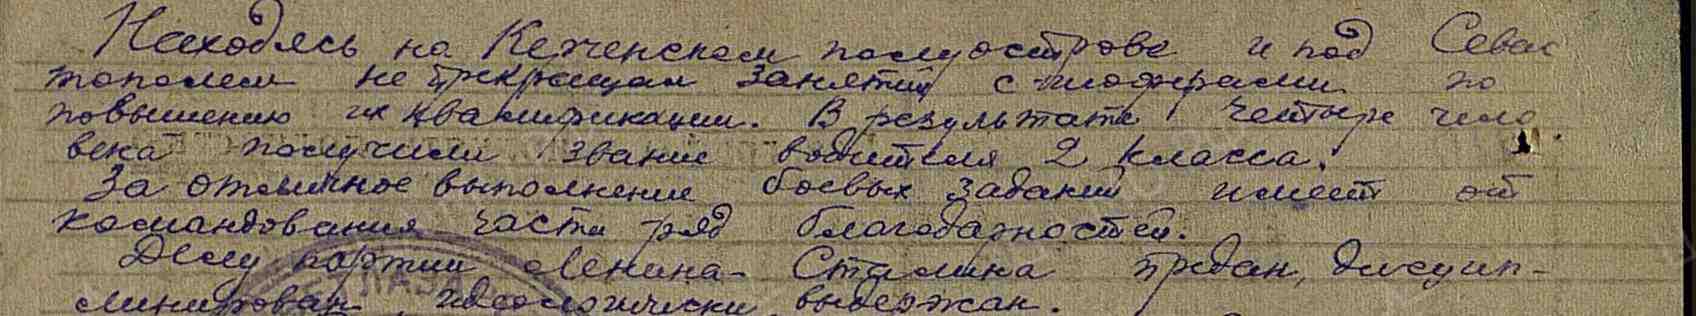 Находясь на Керченском полуострове и под Севас
тополем не прекращал занятий с шоферами по
повышению их квалификации. В результате четыре чело
века получили звание водителя 2 класса.
За отличное выполнение боевых заданий имеет от
командования части ряд благодарностей.
Делу партии Ленина- Сталина предан, дисцип-
линирован, идеологически выдержан.